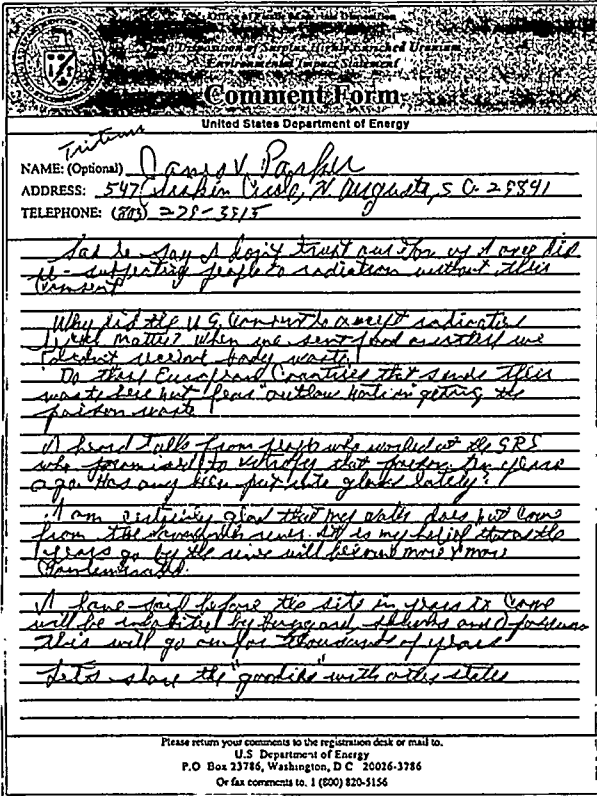 Office of Fissile Materials Disposition
Draft Disposition of Surplus Highly Enriched Uranium
Environmental Impact Statement
Comment Form
United States Department of Energy
Tritium
NAME: (Optional) V. Parker
ADDRESS: 547 Circle, N Augusta, S C. 29841
TELEPHONE: (803) 279-
to say I don't trust our
subjecting people to radiation without their
consent
Why did the U.S. consent to accept radioactive
matter? When we sent food overseas we
didn't receive body waste.
Do these European Countries that sends their
waste here not fear outlaw nation getting the
poison waste
I heard talks from people who worked at the SRS
who promised to vitrify that poison ten years
ago. Has any been put into glass lately?
I am certainly glad that my water does not come
from the Savannah river. It is my belief that as the
years go by the river will become more & more
contaminated.
I have said before the site in years to come
will be inhabited by and
this will go on for thousands of years
Let's share the "goodies" with other states
Please return your comments to the registration desk or mail to.
U.S Department of Energy
P.O Box 23786, Washington, D C 20026-3786
Or fax comments to. 1 (800) 820-5156